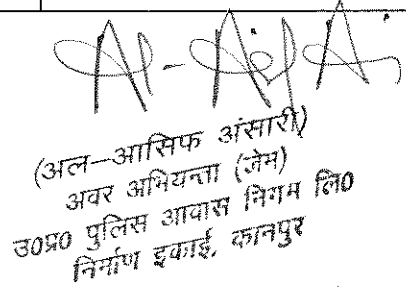 (अल–आसिफ अंसारी)
अवर अभियन्ता (जेम)
उ0प्र0 पुलिस आवास निगम लि0
निर्माण इकाई, कानपुर